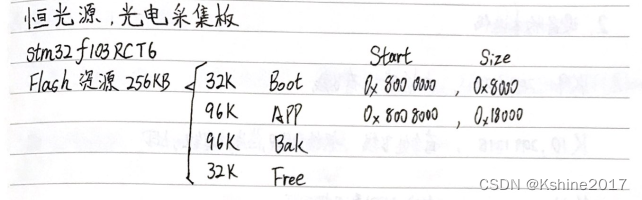 恒光源,光电采集板
stm32f103RCT6 Start Size
Flash 资源 256KB 32K Boot 0x800 0000 , 0x8000
96K APP 0x800 8000 , 0x18000
96K Bak
32K Free
CSDN @Kshine2017